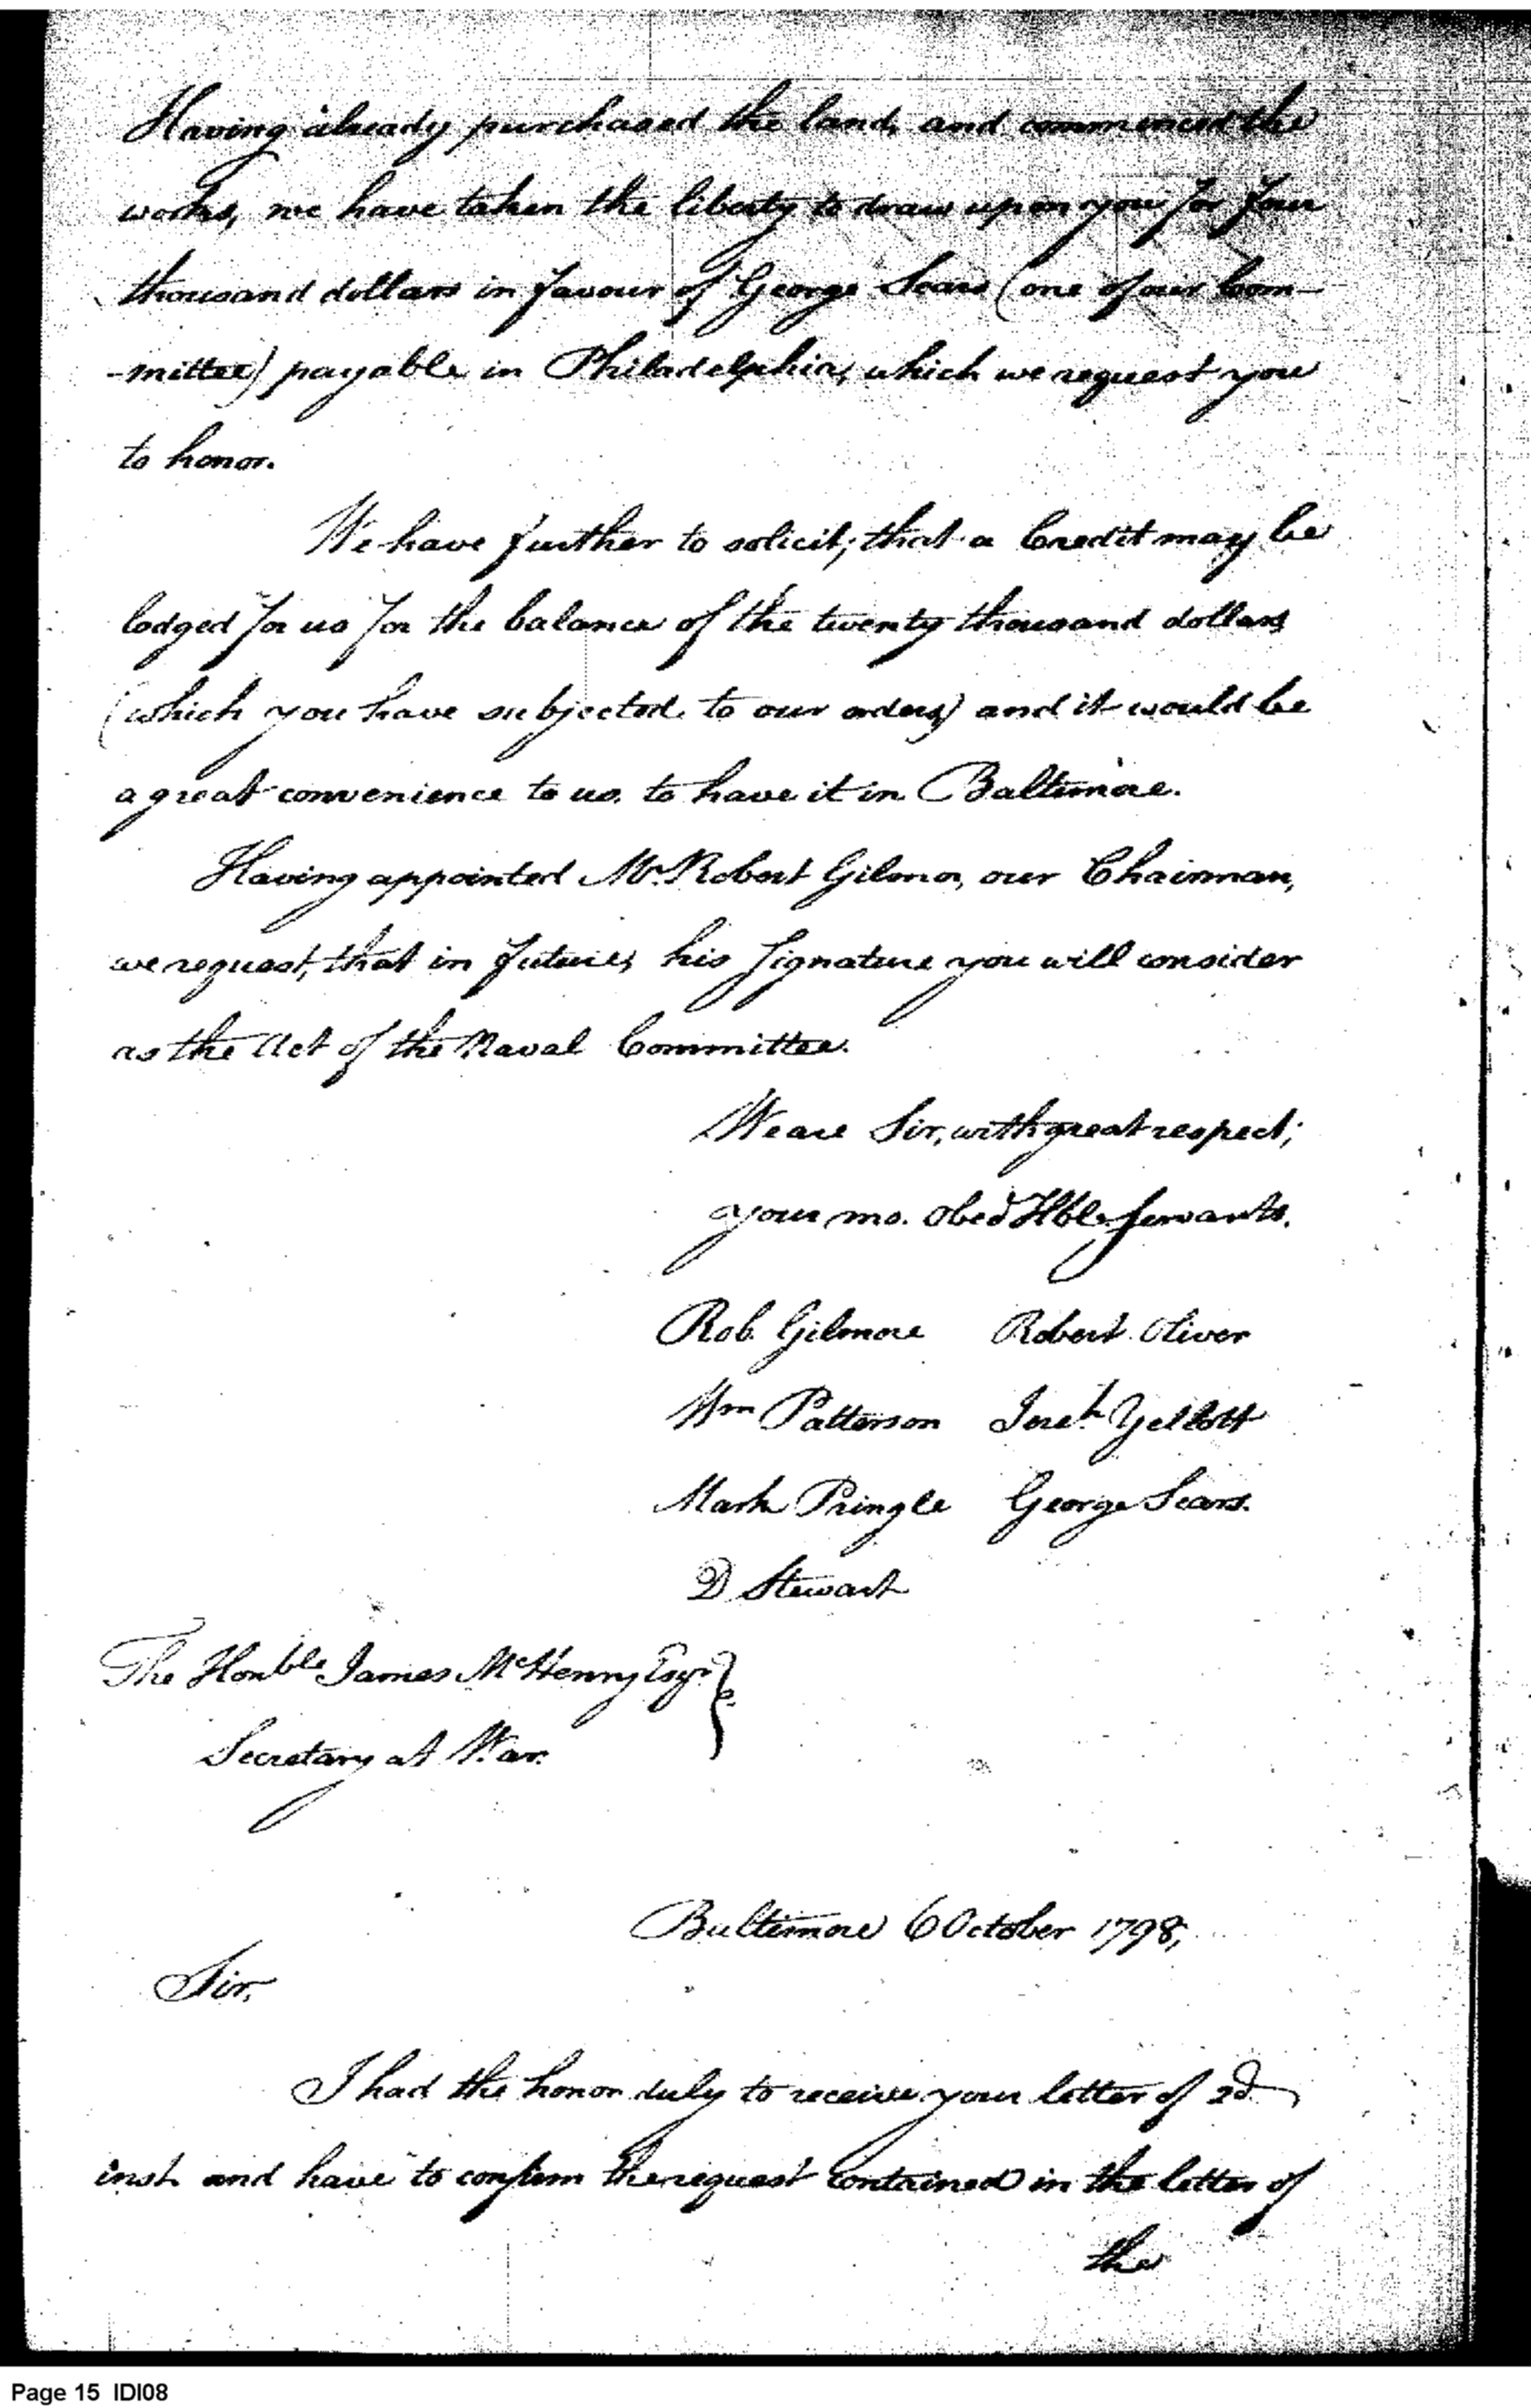 Having already purchased the land, and commenced the
works, we have taken the liberty to draw upon you for four
thousand dollars in favour of George Sears (one of our Com-
-mittee) payable in Philadelphia, which we request you
to honor.
We have further to solicit, that a Credit may be
lodged for us for the balance of the twenty thousand dollars
(which you have subjected to our orders) and it would be
a great convenience to us to have it in Baltimore.
Having appointed Mr. Robert Gilmor, our Chairman,
we request, that in future, his Signature you will consider
as the Act of the Naval Committee.
We are Sir, with great respect,
your mo. Obed Hble Servants.
Rob. Gilmore Robert Oliver
Wm Patterson Jereh Yellott
Mark Pringle George Sears.
D Stewart
The Honble James McHenry Esqr
Secretary at War.
Baltimore 6 October 1798,
Sir,
I had the honor duly to receive your letter of 2d
inst and have to confirm the request contained in the letter of
the
Page 15 IDI08